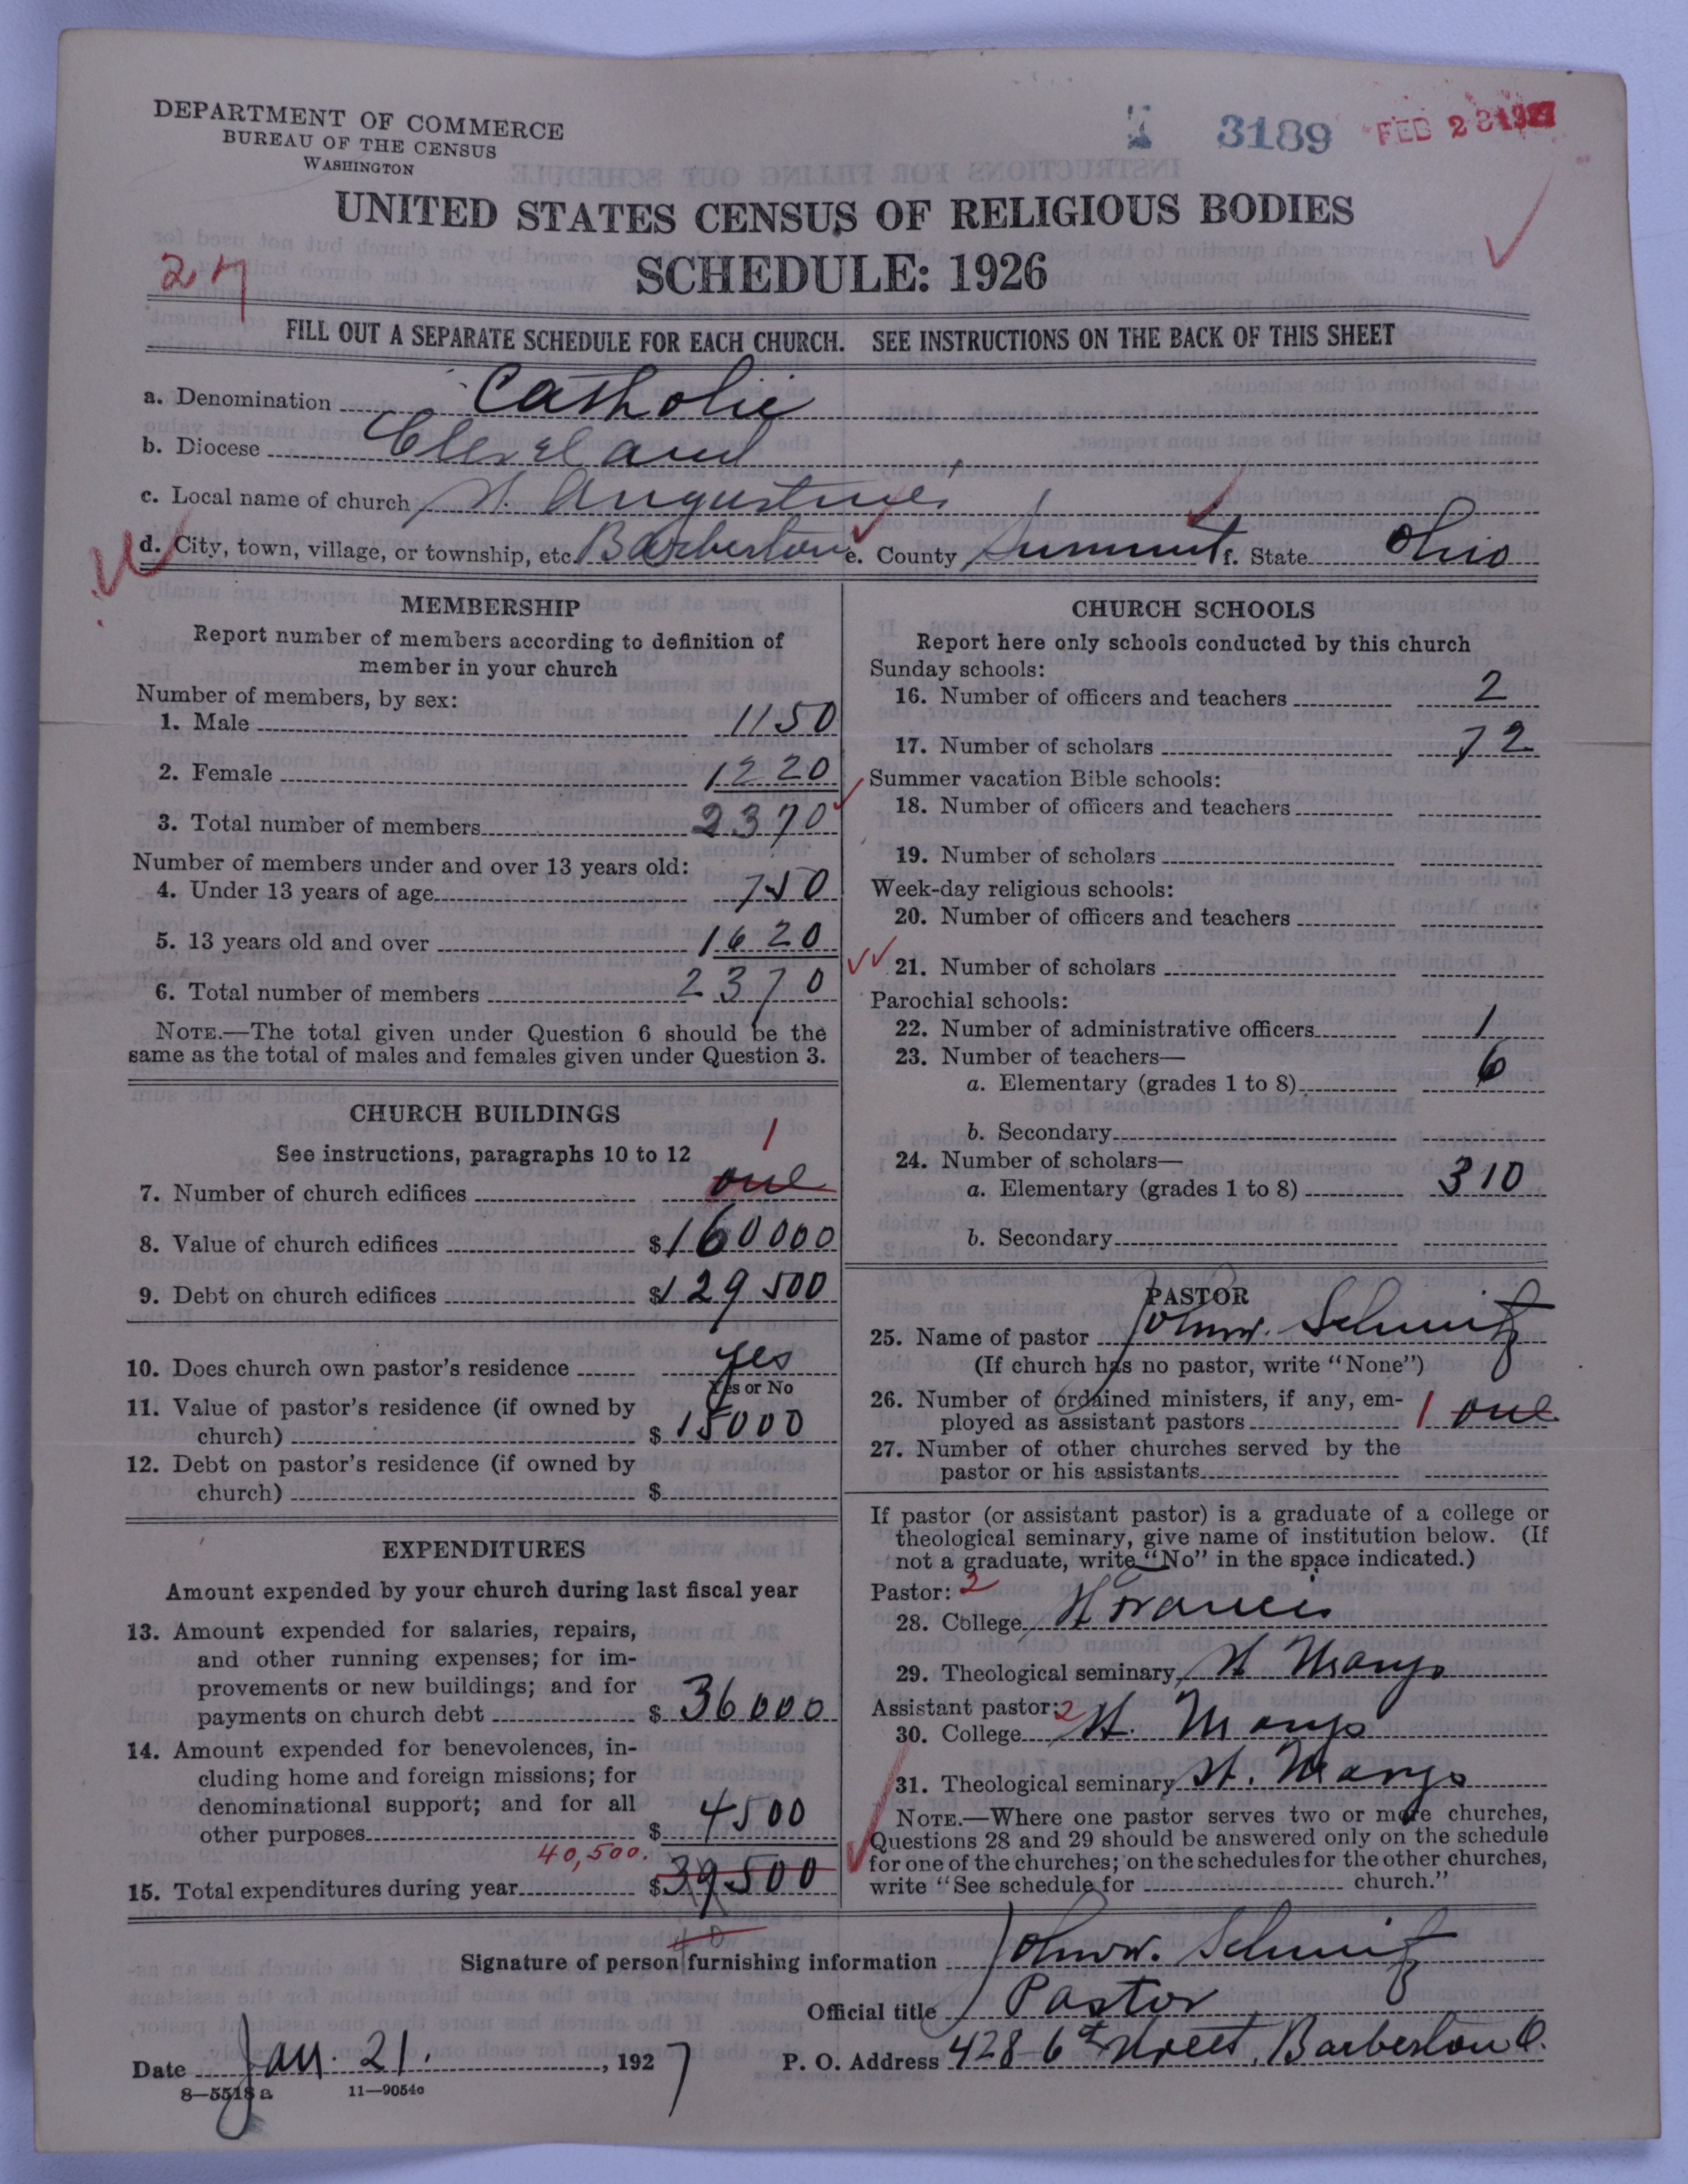 DEPARTMENT OF COMMERCE
BUREAU OF THE CENSUS
WASHINGTON
3189
FEB 28 1927
UNITED STATES CENSUS OF RELIGIOUS BODIES
SCHEDULE: 1926
FILL OUT A SEPARATE SCHEDULE FOR EACH CHURCH. SEE INSTRUCTIONS ON THE BACK OF THIS SHEET
a. Denomination Catholic
b. Diocese Cleveland
c. Local name of church St. Augustine's
d. City, town, village, or township, etc. Barberton e. County Summit f. State Ohio
MEMBERSHIP
Report number of members according to definition of
member in your church
Number of members, by sex:
1. Male 1150
2. Female 1220
3. Total number of members 2370
Number of members under and over 13 years old:
4. Under 13 years of age 750
5. 13 years old and over 1620
6. Total number of members 2370
NOTE.—The total given under Question 6 should be the
same as the total of males and females given under Question 3.
CHURCH BUILDINGS
See instructions, paragraphs 10 to 12
1
7. Number of church edifices one
8. Value of church edifices $160000
9. Debt on church edifices $129500
10. Does church own pastor's residence yes
Yes or No
11. Value of pastor's residence (if owned by
church) $15000
12. Debt on pastor's residence (if owned by
church) $
EXPENDITURES
Amount expended by your church during last fiscal year
13. Amount expended for salaries, repairs,
and other running expenses; for im-
provements or new buildings; and for
payments on church debt $36000
14. Amount expended for benevolences, in-
cluding home and foreign missions; for
denominational support; and for all
other purposes $4500
40,500.
15. Total expenditures during year $39500
40
CHURCH SCHOOLS
Report here only schools conducted by this church
Sunday schools:
16. Number of officers and teachers 2
17. Number of scholars 72
Summer vacation Bible schools:
18. Number of officers and teachers
19. Number of scholars
Week-day religious schools:
20. Number of officers and teachers
21. Number of scholars
Parochial schools:
22. Number of administrative officers 1
23. Number of teachers—
a. Elementary (grades 1 to 8) 6
b. Secondary
24. Number of scholars—
a. Elementary (grades 1 to 8) 310
b. Secondary
PASTOR
25. Name of pastor John W. Schmitz
(If church has no pastor, write "None")
26. Number of ordained ministers, if any, em-
ployed as assistant pastors 1 one
27. Number of other churches served by the
pastor or his assistants
If pastor (or assistant pastor) is a graduate of a college or
theological seminary, give name of institution below. (If
not a graduate, write "No" in the space indicated.)
Pastor: 2
28. College St Francis
29. Theological seminary St Marys
Assistant pastor: 2
30. College St. Marys
31. Theological seminary St. Marys
NOTE.—Where one pastor serves two or more churches,
Questions 28 and 29 should be answered only on the schedule
for one of the churches; on the schedules for the other churches,
write "See schedule for church."
Signature of person furnishing information John W. Schmitz
Official title Pastor
Date Jan. 21. , 1927 P. O. Address 428 6th Street, Barberton O.
8—5518 a 11—9054c